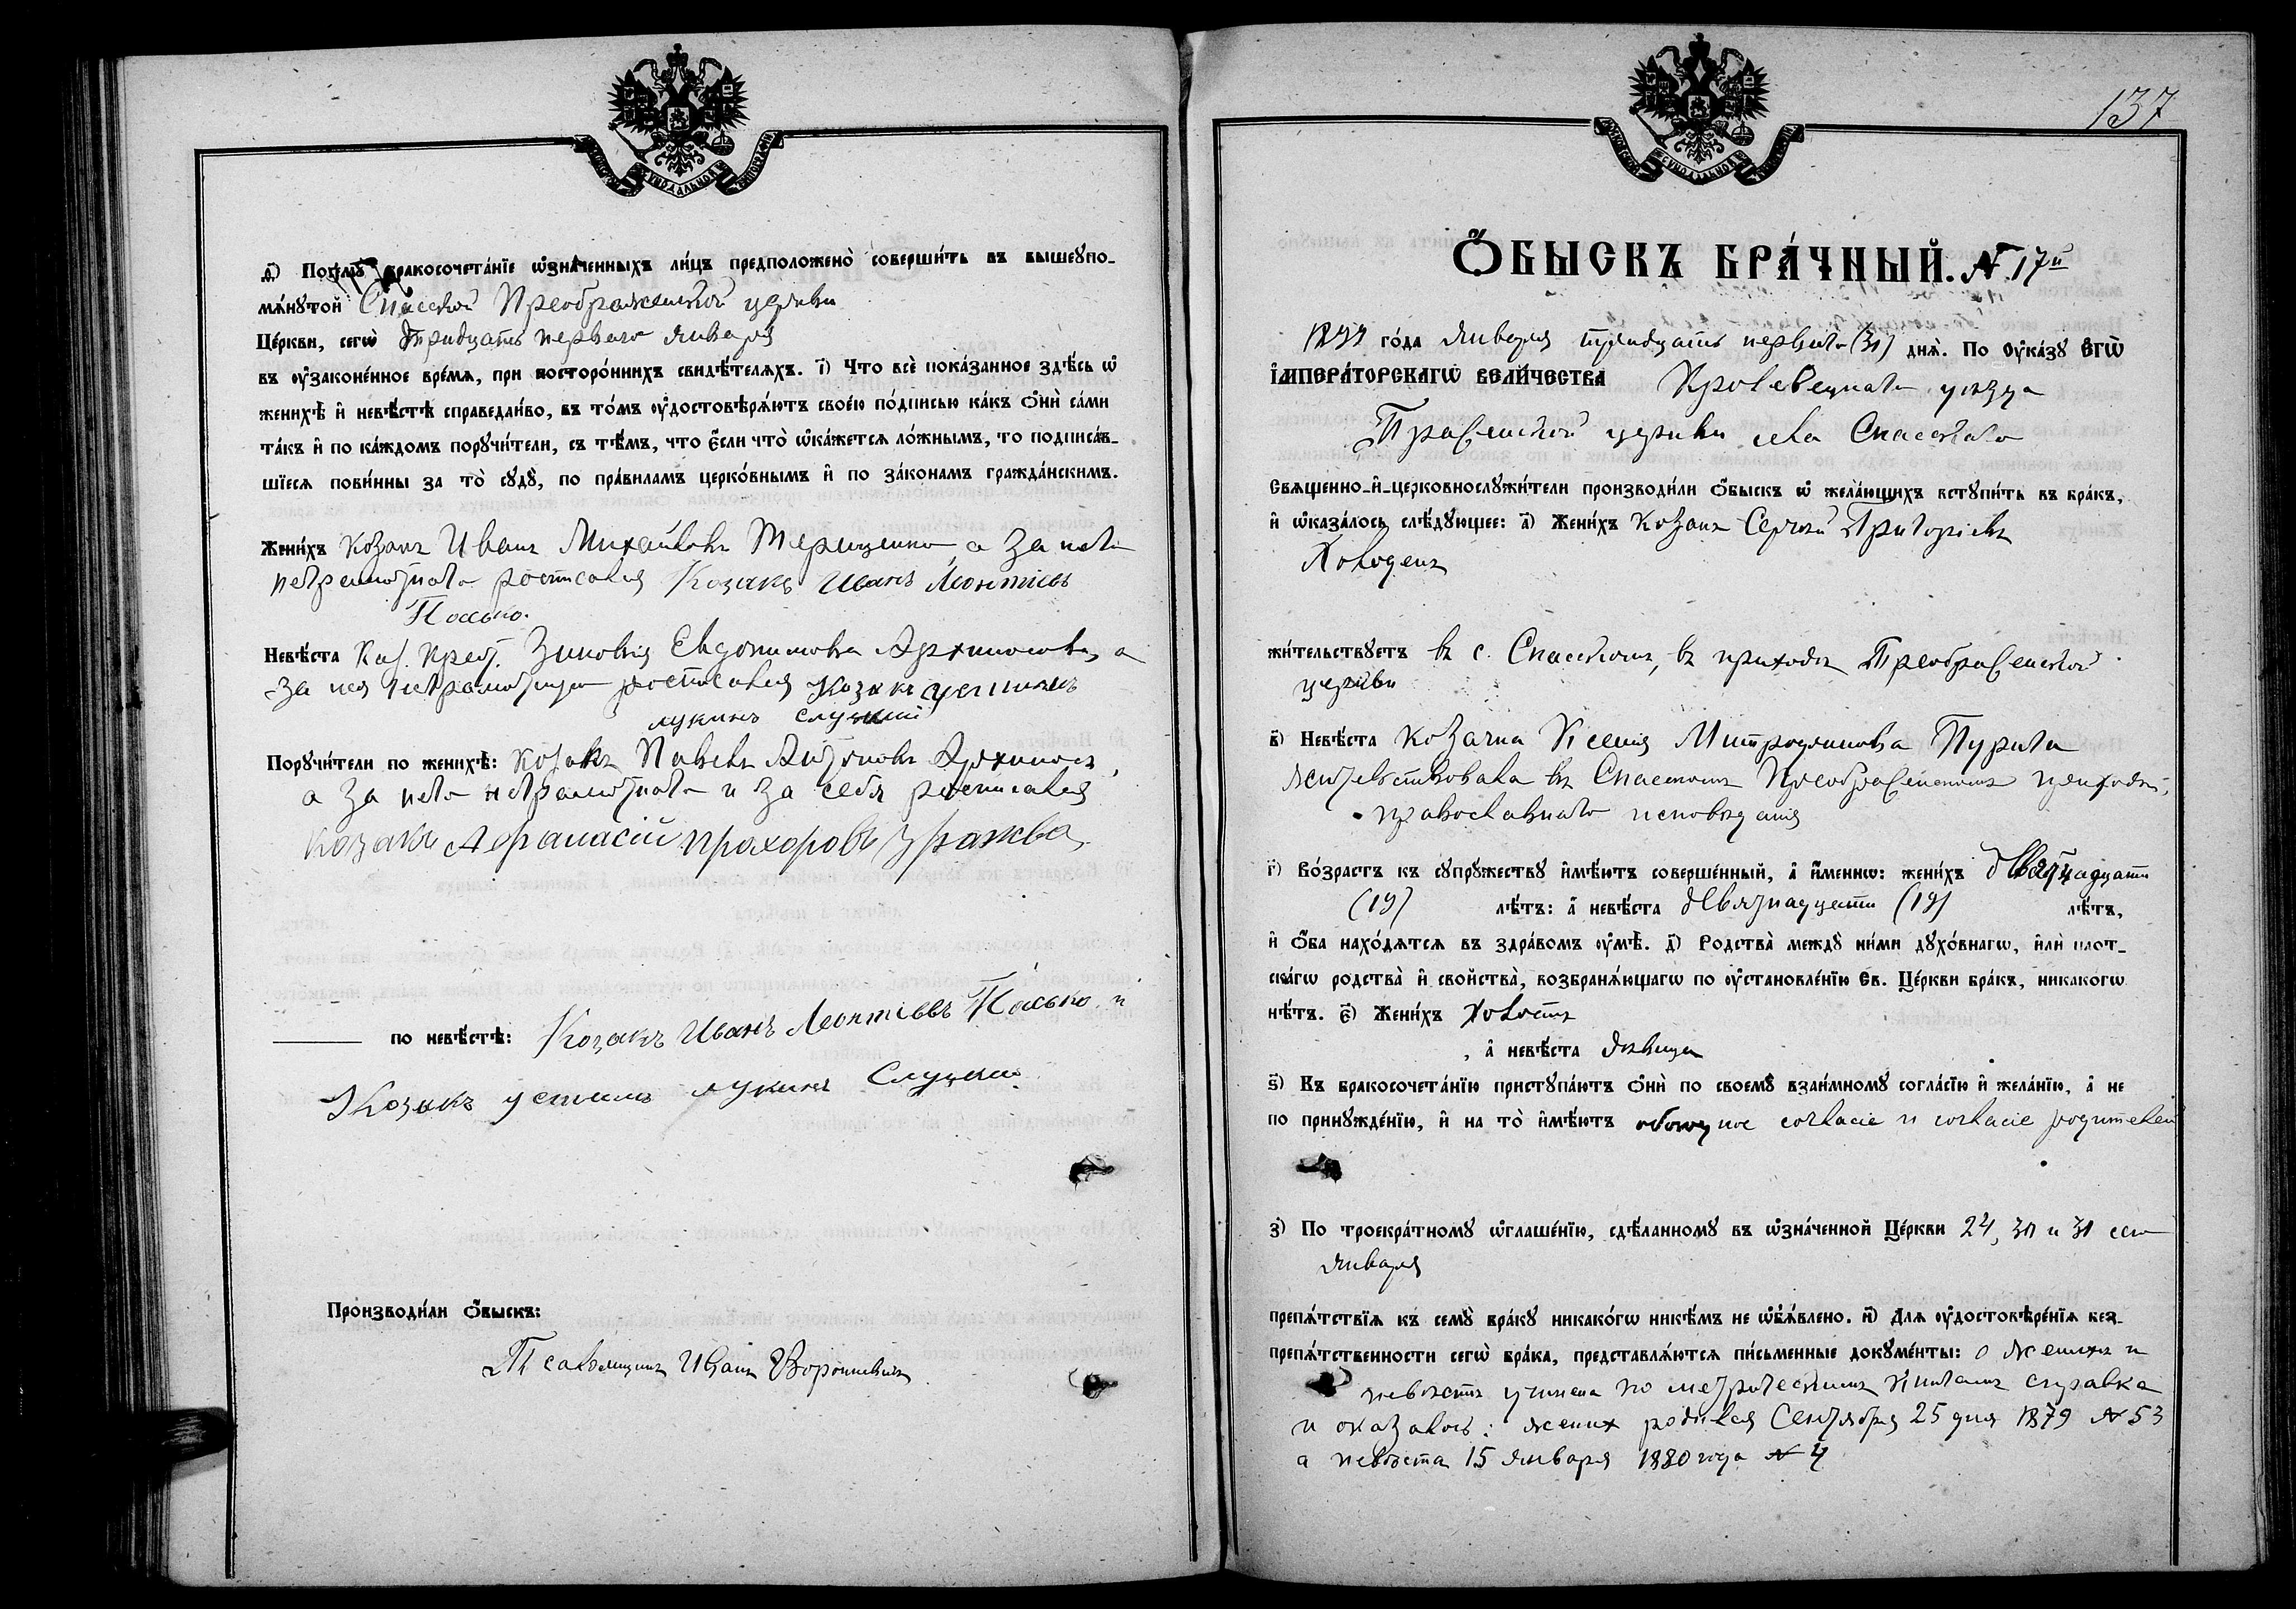 д҃) Посемꙋ̀ бракосочета́нїе ѡ҆зна́ченныхъ ли́цъ предположено̀ соверши́ть въ вышеꙋпо-
мѧ́нꙋтой Спасской Преображенской церкви
Це́ркви, сегѡ̀ тридцать перваго января
въ ᲂу҆законе́нное вре́мѧ, при посторо́ннихъ свидѣ́телѧхъ. і҃) Что всѐ пока́занное здѣ́сь ѡ҆
женихѣ̀ и҆ невѣ́стѣ справедли́во, въ то́мъ ᲂу҆достовѣрѧ́ютъ свое́ю по́дписью ка́къ ѻ҆нѝ са́ми
та́къ и҆ по ка́ждомъ порꙋчи́тели, съ тѣ́мъ, что є҆́сли что̀ ѡ҆ка́жетсѧ ло́жнымъ, то подписа́в-
шїесѧ пови́нны за то̀ сꙋдꙋ̀, по пра́виламъ церко́внымъ и҆ по зако́намъ гражда́нскимъ.
Жени́хъ козакъ Иванъ Михайловъ Терещенко, а за него
неграмотнаго росписался Козакъ Иванъ Леонтіевъ
Пасько.
Невѣ́ста Каз. Зиновія Евдокимовна Архипосова, а
за нея неграмотную росписался козакъ устинъ
лукинъ слуцкий
Порꙋчи́тели по женихѣ̀: козакъ Павелъ Антоновъ
а за него неграмотнаго и за себя росписался
козакъ Афанасій прохоровъ Уражва
по невѣ́стѣ: Козакъ Иванъ Леонтіевъ Пасько и
Козакъ устинъ лукинъ Слуцкий
Производи́ли ѻ҆́быскъ:
Псаломщикъ Иванъ
137
Ѻ҆́БЫСКЪ БРА́ЧНЫЙ. № 17й
1899 го́да января тридцать перваго (31) днѧ̀. По ᲂу҆ка́зꙋ Є҆гѡ̀
І҆мпера́торскагѡ вели́чества Кролевецкаго уезда
Преображенской церкви села Спасскаго
Свѧще́нно-и҆-церковнослꙋжи́тели производи́ли ѻ҆́быскъ ѡ҆ жела́ющихъ встꙋпи́ть въ бра́къ,
и҆ ѡ҆каза́лось слѣ́дꙋющее: а҃) Жени́хъ козакъ Сергій Григоріевъ
Холоденъ
жи́тельствꙋетъ въ с. Спасскомъ, въ приходѣ Преображенской
церкви
в҃) Невѣ́ста козачка Ксенія Митрофанова Пурига
жительствовала въ Спасскомъ Преображенскомъ приходѣ,
православнаго исповѣданія
г҃) Во́зрастъ къ сꙋпрꙋ́жествꙋ и҆мѣ́ютъ соверше́нный, а҆ и҆́меннѡ: жени́хъ девятнадцати
(19) лѣ́тъ: а҆ невѣ́ста девятнадцати (19) лѣ́тъ,
и҆ ѻ҆́ба нахо́дѧтсѧ въ здра́вомъ ᲂу҆мѣ̀. д҃) Родства̀ междꙋ̀ ни́ми дꙋхо́внагѡ, и҆лѝ плот-
ска́гѡ родства̀ и҆ свойства̀, возбранѧ́ющагѡ по ᲂу҆становле́нїю Св. Це́ркви бра́къ, никако́гѡ
нѣ́тъ. є҃) Жени́хъ холостъ
, а҆ невѣ́ста дѣвица
ѕ҃) Къ бракосочета́нїю пристꙋпа́ютъ ѻ҆нѝ по своемꙋ̀ взаи́мномꙋ согла́сїю и҆ жела́нїю, а҆ не
по принꙋжде́нїю, и҆ на то̀ и҆мѣ́ютъ обоюдное согласіе и согласіе родителей
з҃) По троекра́тномꙋ ѡ҆глаше́нїю, сдѣ́ланномꙋ въ ѡ҆зна́ченной Це́ркви 24, 30 и 31 сего
января
препѧ́тствїѧ къ семꙋ̀ бра́кꙋ никако́гѡ никѣ́мъ не ѡ҆б̾ѧ́влено. и҃) Длѧ ᲂу҆достовѣре́нїѧ без-
препѧ́тственности сегѡ̀ бра́ка, представлѧ́ютсѧ пи́сьменные докꙋме́нты: о женихѣ и
невѣстѣ учинена по метрическимъ книгамъ справка
и оказалось: женихъ родился Сентября 25 дня 1879 № 53
а невѣста 15 января 1880 года № 4